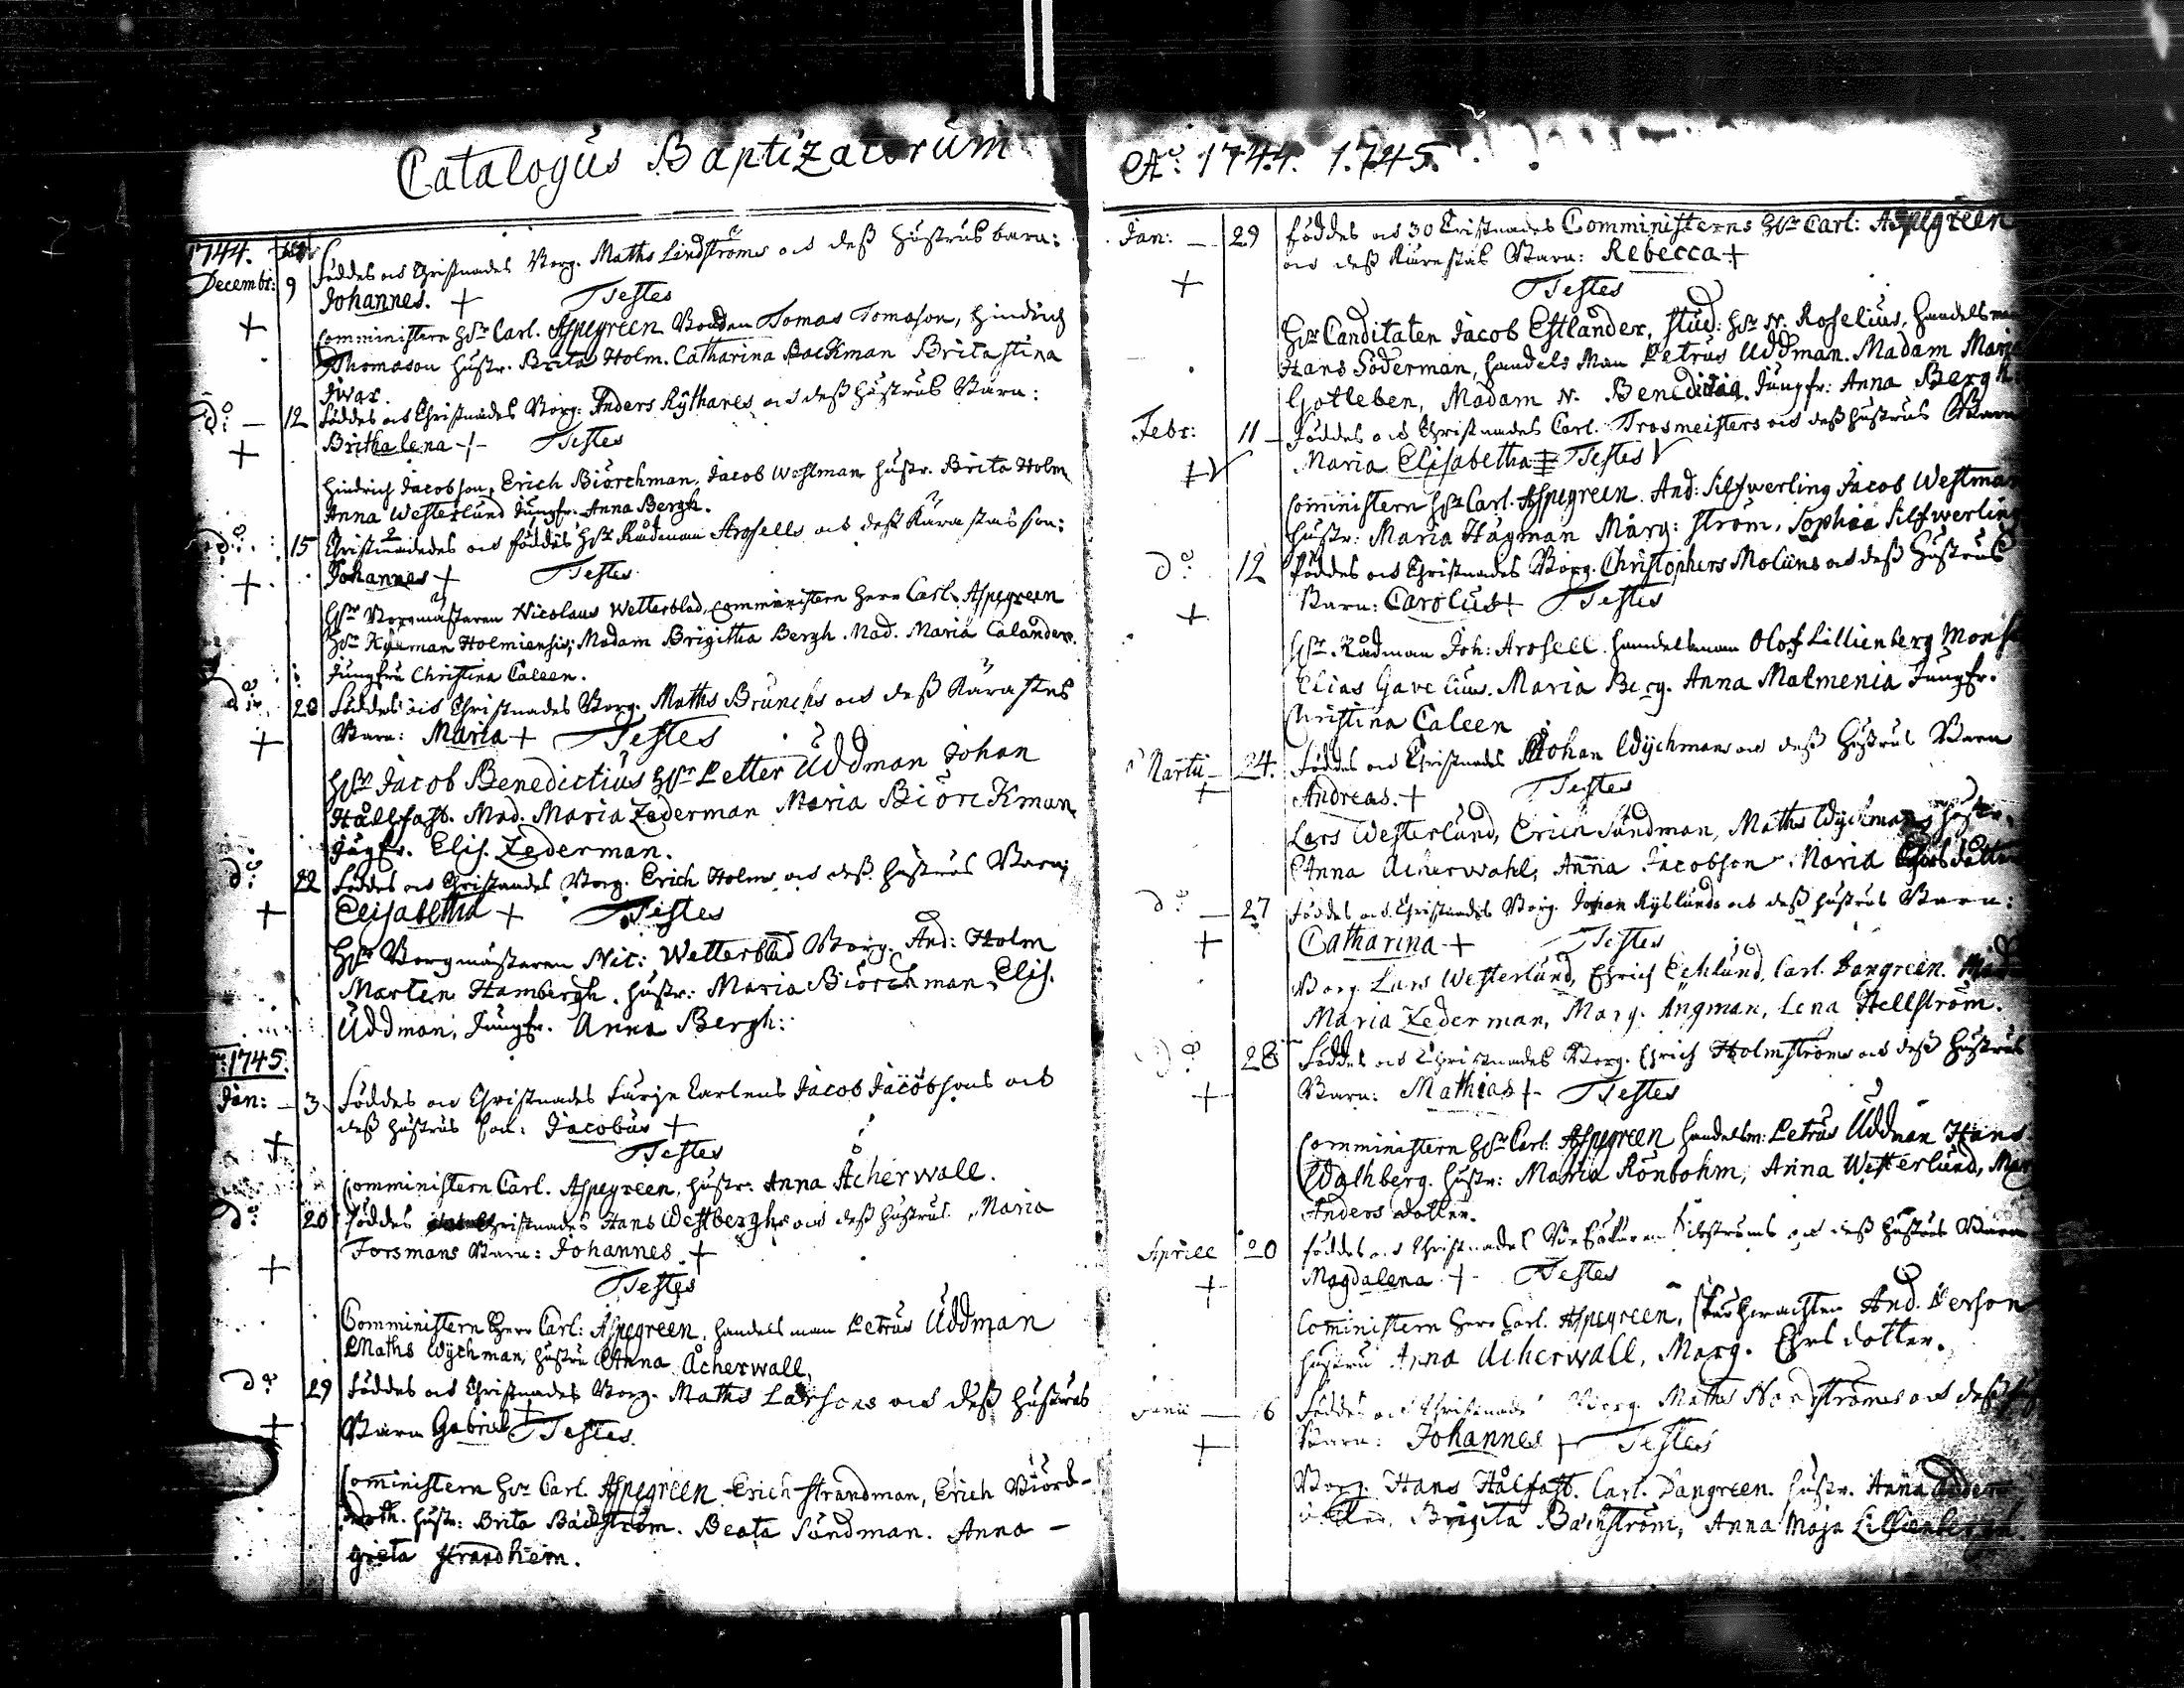 Catalogus Baptizatorum
1744.
Decembr: 9 Föddes och Christnades Borg. Maths Lindströms och deß Hustrus barn:
Johannes. + Testes
Comministern Hr Carl. Aspegreen Tomas Tomason, Hindrich
Thomason Hustr. Brita Holm. Catharina Backman Brita Stina
Iwar.
do — 12 Föddes och Christnades Borg: Anders Rythanes och deß Hustrus Barn:
Britha Lena + Testes
Hindrich Jacobson, Erich Biörchman, Jacob Westman Hustr. Brita Holm
Anna Westerlund Jungfr. Anna Bergh.
do: 15 Christnadedes och föddes Hr Rådman Arosells och deß Kärastas son:
Johannes + Testes
Hr Borgmästaren Nicolaus Wetterblad, Comministern Herr Carl. Aspegreen
Hr Holmiensis, Madam Brigitha Bergh. Mad. Maria Calander.
Jungfru Christina Caleen.
do: 20 Föddes och Christnades Borg. Maths Brunchs och deß Kärastes
Barn: Maria + Testes
Hr Jacob Benedictius Hr Petter Uddman Johan
Hålfast. Mad. Maria Zederman Maria Biörckman
Jugfr. Elis. Zederman.
do 22 Föddes och Christnades Borg. Erich Holms och deß Hustrus Barn;
Elisabetha + Testes
Hr Borgmästaren Nic: Wetterblad Borg. And: Holm
Marten Hambergh. Hustr: Maria Biörchman, Elis.
Uddman, Jungfr. Anna Bergh:
1745.
Jan: — 3. Föddes och Christnades Färje Karlens Jacob Jacobsons och
deß Hustrus son: Jacobus +
Testes
Comministern Carl. Aspegreen, Hustr: Anna Acherwall.
do: 20 Föddes Christnades Hans Westberghs och deß Hustrus Maria
Forsmans Barn: Johannes +
Testes
Comministern Herr Carl: Aspegreen, Handelsman Petrus Uddman
Maths Wychman, Hustru Anna Åcherwall,
do 29 Föddes och Christnades Borg. Maths Larsons och deß Hustrus
Barn Gabriel + Testes
Comministern Hr Carl. Aspegreen Erich Strandman, Erich Biörd-
Hustr: Brita Bäckström. Beata Sundman. Anna —
Greta Strandhem.
Ao: 1744. 1745.
Jan: — 29 föddes och 30 Cristnades Comministerns Hr Carl: Aspegreen
och deß Kärastas Barn: Rebecca +
Testes
Hr Canditaten Jacob Estlander, Stud: Hr N. Roselius, Handelsman
Hans Söderman, Handels Man Petrus Uddman. Madam Maria
Gotleben, Madam N. Jungfr: Anna Bergh:
Febr: 11 — Föddes och Christnades Carl. Trosmeisters och deß Hustrus Barn
Maria Elisabetha Testes
Comministern Hr Carl. Aspegreen. And: Silfwerling Jacob Westman
Hustr: Maria Hagman Marg: Ström, Sophia Silfwerling
do: 12 Föddes och Christnades Borg. Christophers Moliins och deß Hustrus
Barn: Carolus + Testes
Hr Rådman Joh: Arosell. Handelsman Olof Lillienberg Mons:
Elias Gavelius. Maria Berg. Anna Malmenia Jungfr.
Christina Caleen
Martii — 24. Föddes och Christnades Johan Wychmans och deß Hustrus Barn
Andreas. + Testes
Lars Westerlund, Erich Sundman, Maths Wychman, Hustr.
Anna Acherwahl, Anna Jacobson Maria
do — 27 Föddes och Christnades Borg. Johan Ryslunds och deß Hustrus Barn:
Catharina + Testes
Borg. Lars Westerlund, Erich Ecklund, Carl. Dangreen.
Maria Zederman, Marg. Ångman, Lena Hellström.
do 28 Föddes och Christnades Borg. Erich Holmströms och deß Hustrus
Barn: Mathias + Testes
Comministern Hr Carl. Aspegreen Handelsm: Petrus Uddman Hans
Walhberg. Hustr: Maria Rönbohm, Anna Westerlund,
Anders dotter.
Aprill 20 Föddes och Christnades och deß Hustrus Barn
Magdalena + Testes
Cominstern Herr Carl. Aspegreen, And. Person
Hustru Anna Acherwall, Marg. dotter.
Junii — 16 Föddes och Christnades Borg. Maths Nordströms och deß
Barn: Johannes + Testes
Borg. Hans Hålfast. Carl. Dangreen. Hustr. Anna Anders
dotter, Brigita Bachström, Anna Maja Lillienbergh.